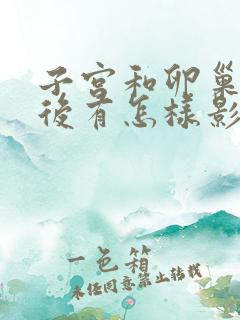 子宮和卵巢
後有怎樣影
一色箱
未经同意禁止转载